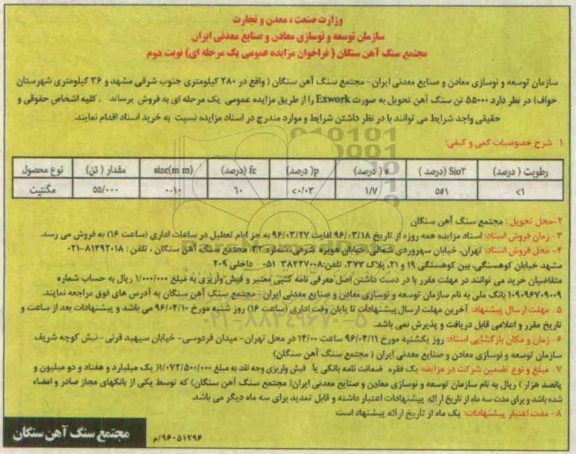 وزارت صنعت ، معدن و تجارت
سازمان توسعه و نوسازی معادن و صنایع معدنی ایران
مجتمع سنگ آهن سنگان ( فراخوان مزایده عمومی یک مرحله ای) نوبت دوم
سازمان توسعه و نوسازی معادن و صنایع معدنی ایران- مجتمع سنگ آهن سنگان ( واقع در ۲۸۰ کیلومتری جنوب شرقی مشهد و ۳۶ کیلومتری شهرستان
خواف) در نظر دارد ۵۵۰۰۰ تن سنگ آهن تحویل به صورت Exwork را از طریق مزایده عمومی یک مرحله ای به فروش برساند. کلیه اشخاص حقوقی و
حقیقی واجد شرایط می توانند با در نظر داشتن شرایط و موارد مندرج در اسناد مزایده نسبت به خرید اسناد اقدام نمایند.
۱ شرح خصوصیات کمی و کیفی:
نوع محصول مقدار ( تن) size(mm) fe (درصد) p( درصد) s (درصد) Sio۲ (درصد ) رطوبت ( درصد)
مگنتیت ۵۵/۰۰۰ ۰-۱۰ ۶۰ <۰/۰۳ ۱/۷ ۵±۱ <۱
۲-محل تحویل: مجتمع سنگ آهن سنگان
۳- زمان فروش اسناد: اسناد مزایده همه روزه از تاریخ ۹۶/۰۳/۱۸ لغایت ۹۶/۰۳/۲۷ به جز ایام تعطیل در ساعات اداری (ساعت ۱۶) به فروش می رسد.
۴- محل فروش اسناد: تهران، خیابان سهروردی شمالی، خیابان هویزه شرقی، شماره ۳۲، مجتمع سنگ آهن سنگان ، تلفن : ۸۱۴۹۲۰۱۸-۰۲۱
مشهد خیابان کوهسنگی، بین کوهسنگی ۱۹ و ۲۱، پلاک ۳۷۷، تلفن: ۳۸۴۲۷۰۰۸ ۰۵۱ داخلی ۲۰۹
متقاضیان خرید می توانند در مهلت مقرر با در دست داشتن اصل معرفی نامه کتبی معتبر و فیش واریزی به مبلغ ۱/۰۰۰/۰۰۰ ریال به حساب شماره
۱۰۹۰۹۶۷۰۹۰۰۹ بانک ملی به نام سازمان توسعه و نوسازی معادن و صنایع معدنی ایران- مجتمع سنگ آهن سنگان به آدرس های فوق مراجعه نمایند.
۵ مهلت ارسال پیشنهاد: آخرین مهلت ارسال پیشنهادات تا پایان وقت اداری (ساعت ۱۶) روز شنبه مورخ ۹۶/۰۴/۱۰ می باشد و پیشنهادات بعد از ساعت و
تاریخ مقرر و اعلامی قابل دریافت و پذیرش نمی باشد.
۶- زمان و مکان بازگشایی اسناد: روز یکشنبه مورخ ۹۶/۰۴/۱۱ ساعت ۱۴/۰۰ در محل تهران- میدان فردوسی- خیابان سپهبد قرنی- نبش کوچه شریف
سازمان توسعه و نوسازی معادن و صنایع معدنی ایران ( مجتمع سنگ آهن سنگان)
۷- مبلغ و نوع تضمین شرکت در مزایده: یک فقره ضمانت نامه بانکی یا فیش واریزی وجه نقد به مبلغ ۱/۰۷۲/۵۰۰/۰۰۰( یک میلیارد و هفتاد و دو میلیون و
پانصد هزار ) ریال به نام سازمان توسعه و نوسازی معادن و صنایع معدنی ایران( مجتمع سنگ آهن سنگان) که توسط یکی از بانکهای مجاز صادر و امضاء
شده باشد و برای مدت سه ماه از تاریخ ارائه پیشنهادات اعتبار داشته و قابل تمدید برای سه ماه دیگر می باشد.
۸- مدت اعتبار پیشنهادات: یک ماه از تاریخ ارائه پیشنهاد است
۹۶۰۵۱۲۹۶/م
مجتمع سنگ آهن سنگان